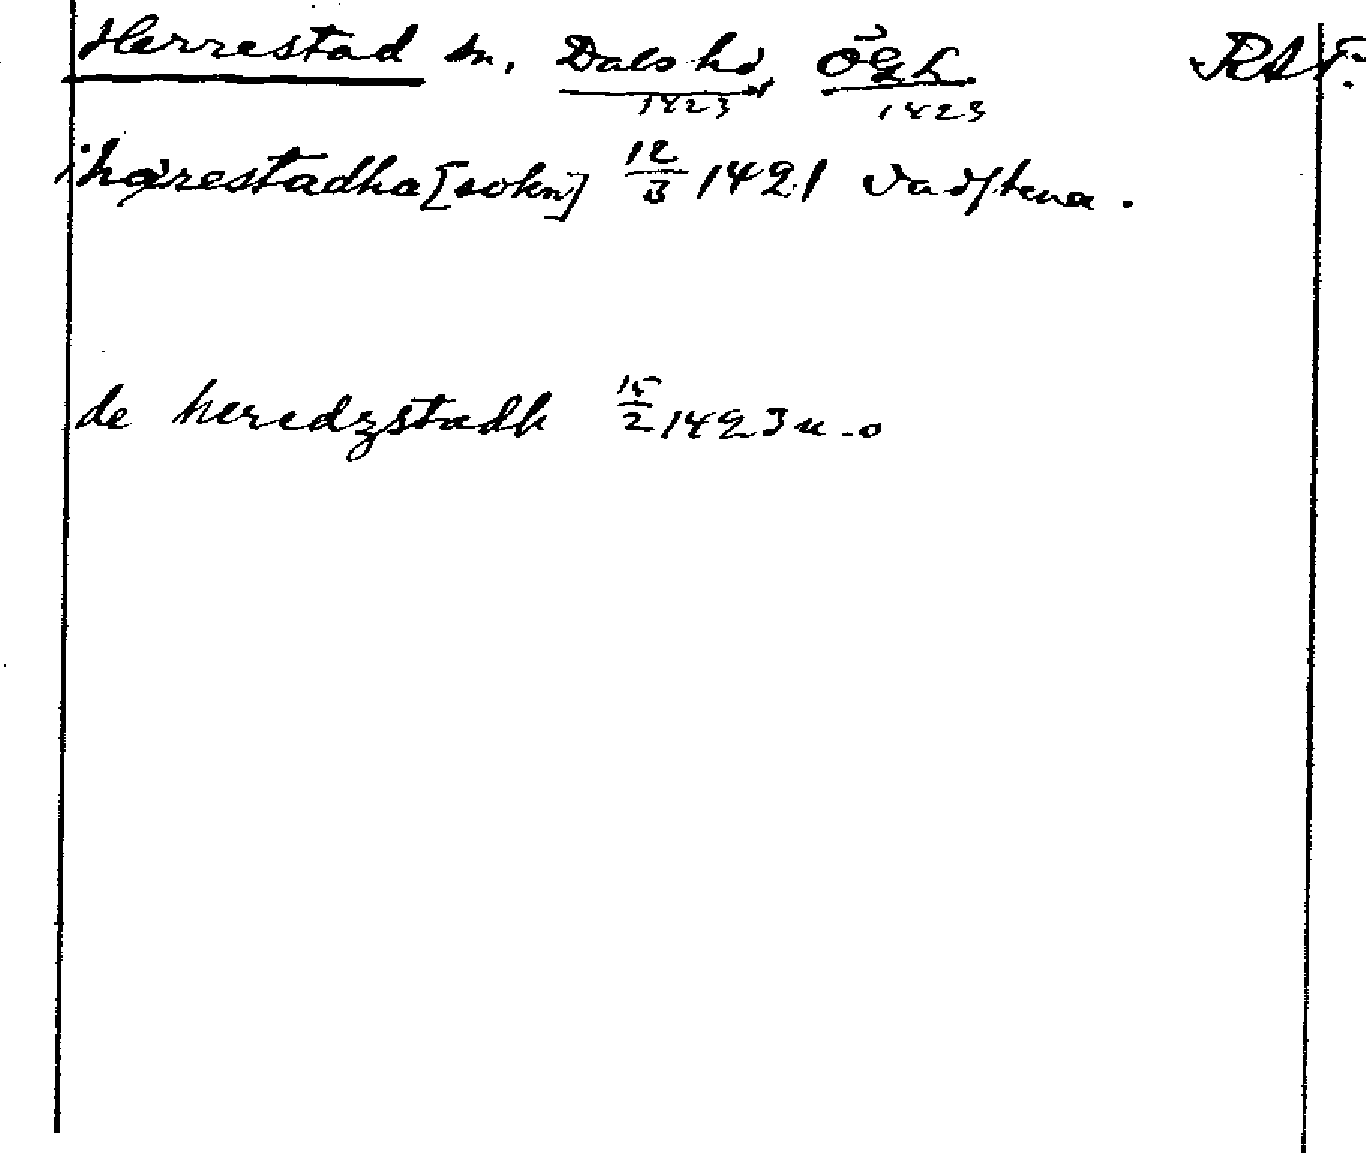 Herrestad sn, Dals hd, Ögl. RAF.
1423 1423
i hærestadha [sokn] 12/3 1421 Vadstena.
de heredzstadh 15/2 1423 u. o